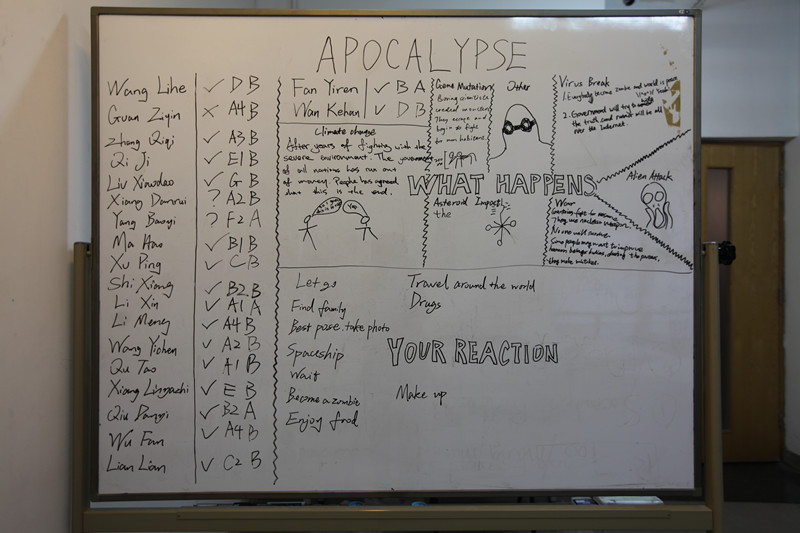 APOCALYPSE
Wang Lihe ✓ D B
Guan Ziyin × A4 B
Zhang Qiqi ✓ A3 B
Qi Ji ✓ E1 B
Liu Xiaodao ✓ G B
Xiang Danrui ? A2 B
Yang Baoyi ? F2 A
Ma Hao ✓ B1 B
Xu Ping ✓ C B
Shi Xiang ✓ B2 B
Li Xin ✓ A1 A
Li Meng ✓ A4 B
Wang Yichen ✓ A2 B
Qu Tao ✓ A1 B
Xiang ✓ E B
Qiu ✓ B2 A
Wu Fan ✓ A4 B
Lian Lian ✓ C2 B
Fan Yiren ✓ B A
Wan Kehan ✓ D B
Climate change
After years of fighting with the
severe environment. The government
of all nations has run out
of money. People has agreed
that this is the end.
Yes.
Gene Mutation
Boring scientists
created monsters
They escape and
begin to fight
for own habitat
Other
Virus Break
1. Everybody become zombie and world is peace
2. Government will try to
the truth and rumor will be all
over the Internet.
WHAT HAPPENS
Asteroid Impact
the
Alien Attack
War
They use nuclear weapon.
No one will survive.
Some people may want to improve
human beings' bodies, during the process,
they make mistakes.
YOUR REACTION
Let go
Find family
Best pose, take photo
Spaceship
Wait
Become a zombie
Enjoy food
Travel around the world
Drugs
Make up